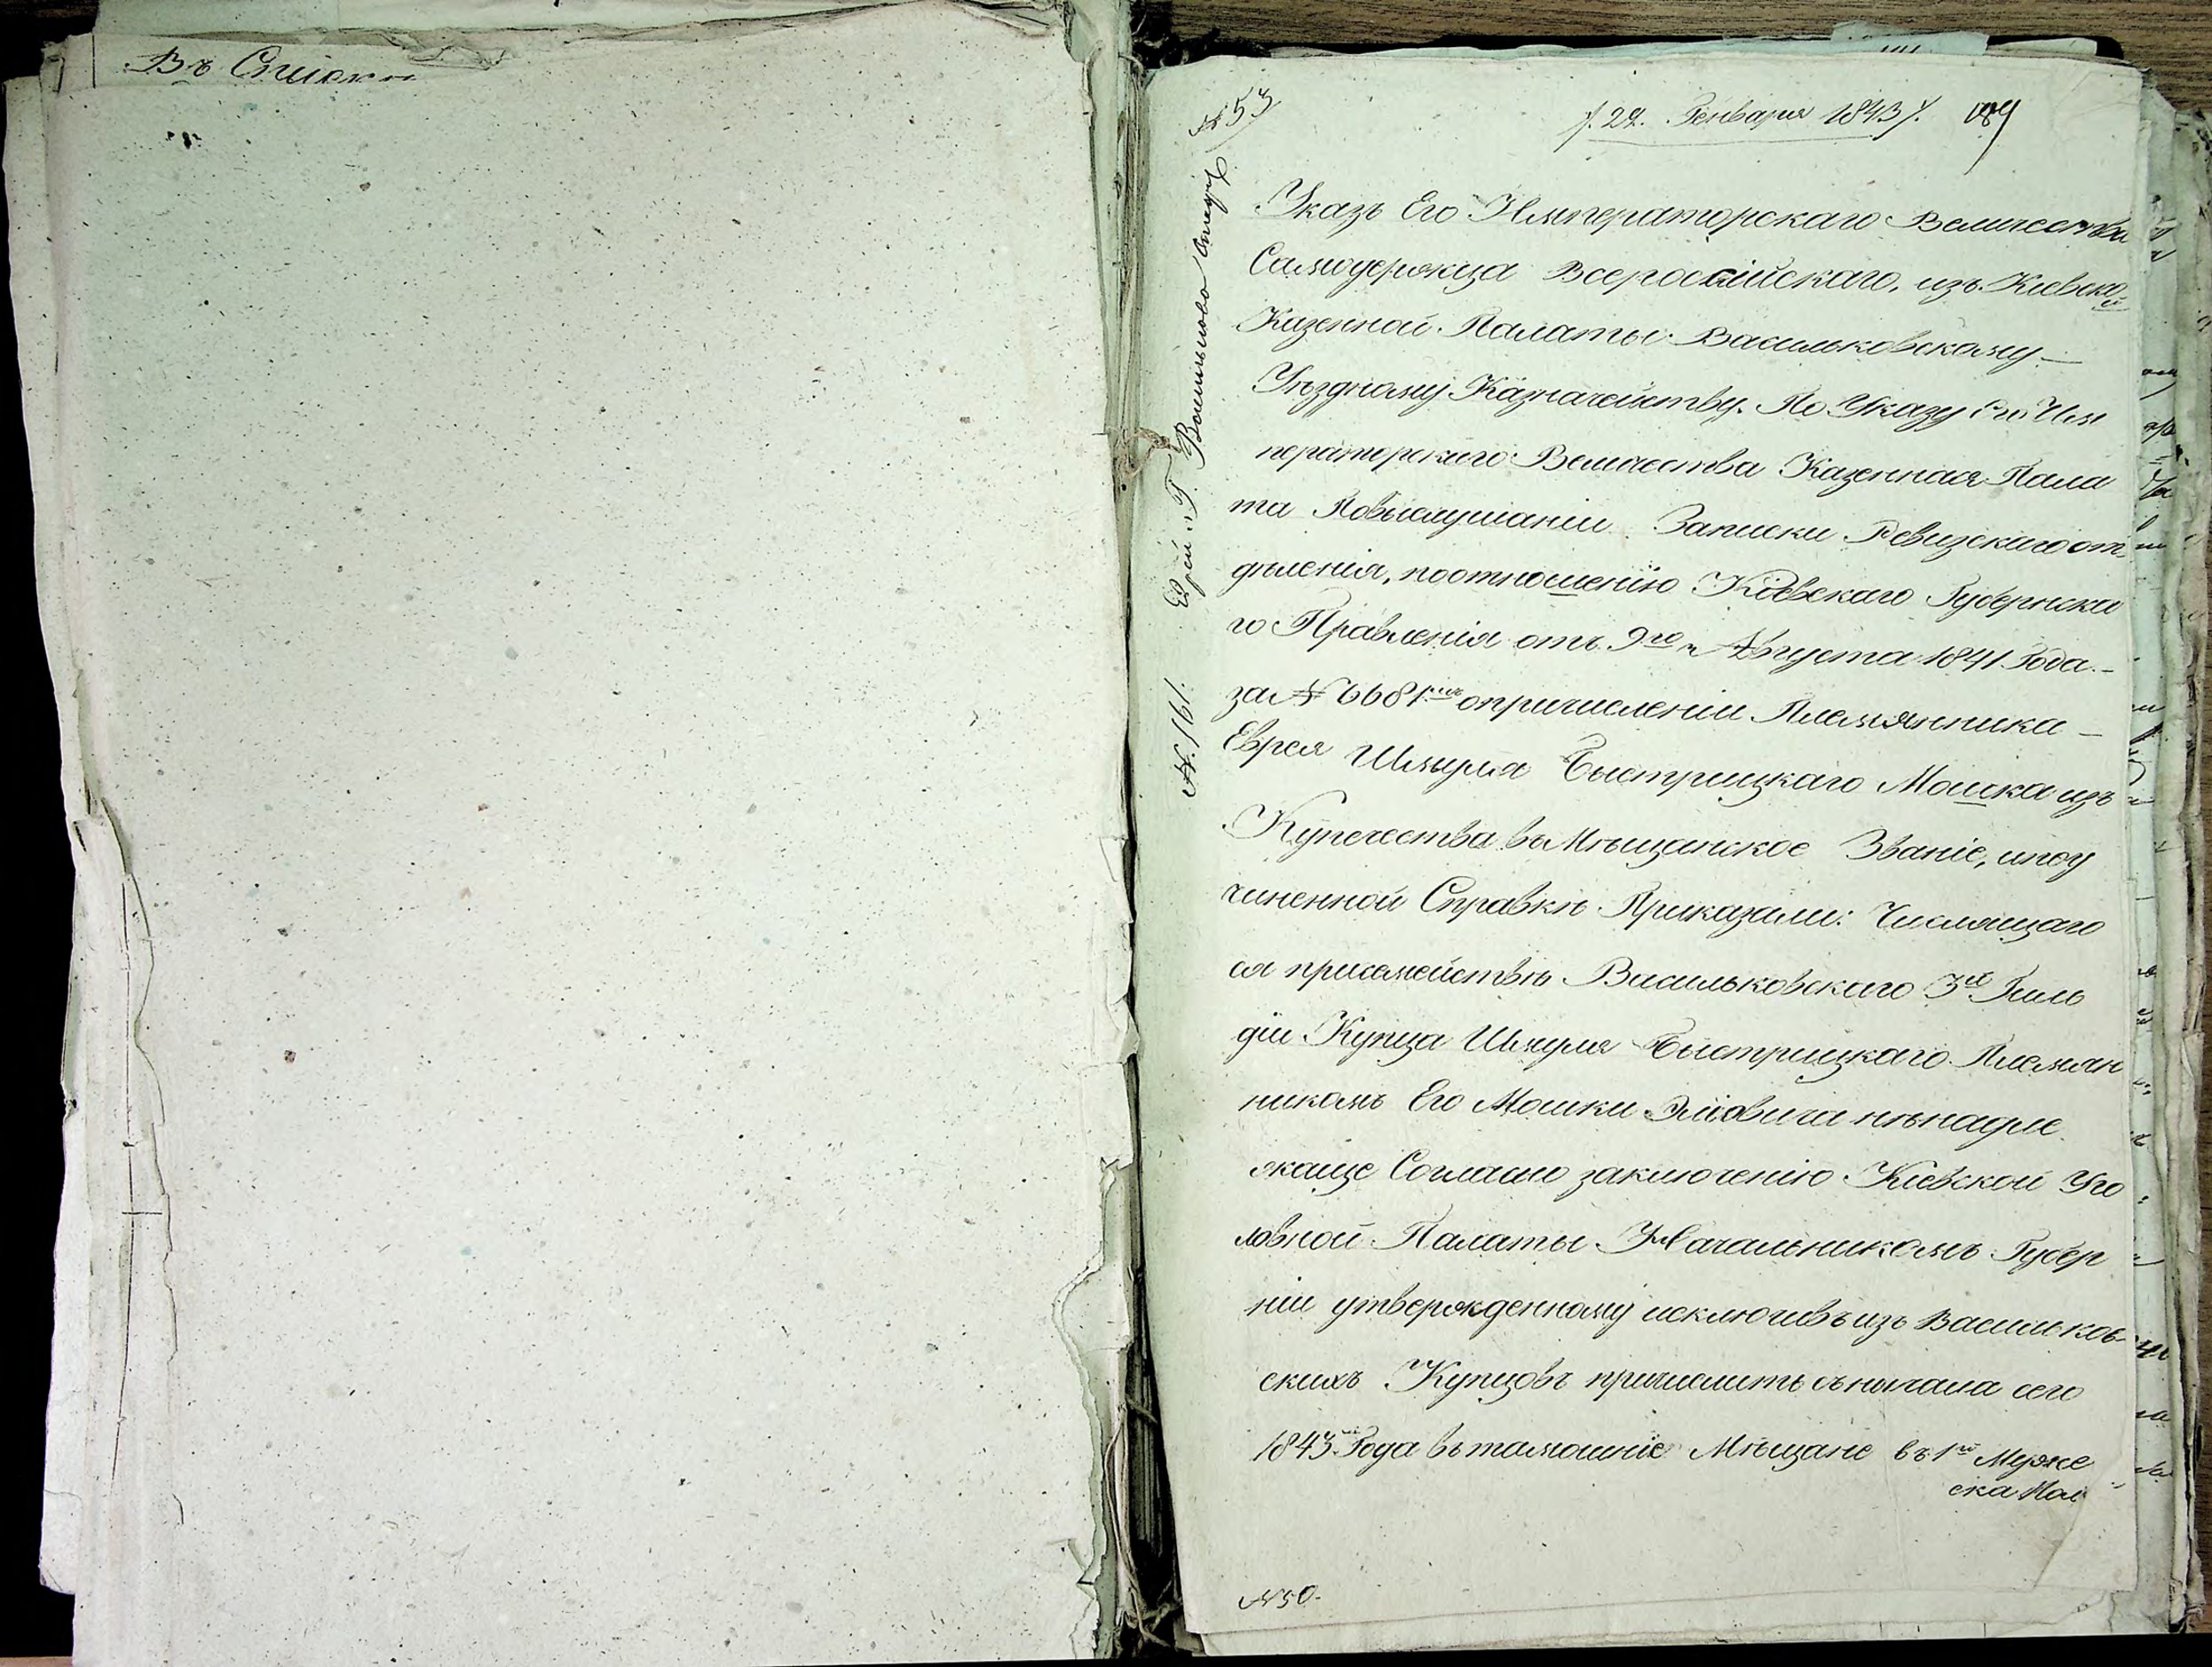 Въ Списки
№ 53
/. 22. Генваря 1843 /.
189
Указъ Его Императорскаго Величества
Самодержца Всероссійскаго, изъ Кіевской
Казенной Палаты Васильковскому
Уѣздному Казначейству. По Указу Его Им
ператорскаго Величества Казенная Пала
та Повыслушаніи Записки Ревизскаго от
дѣленія, поотношенію Кіевскаго Губернска
го Правленія отъ 9го Августа 1841 Года
за № 6681мъ опричисленіи Племянника
Еврея Шмуля Быстрицкаго Мошка изъ
Купечества въ Мѣщанское Званіе, ипоу
чиненной Справкѣ Приказали: Числящаго
ся присемействѣ Васильковскаго 3й Гиль
діи Купца Шмуля Быстрицкаго Племян
никомъ Его Мошки Эліовича нѣнадле
жаще Согласно заключенію Кіевской Уго
ловной Палаты Начальникомъ Губер
ніи утвержденному исключивъ изъ Васильков
скихъ Купцовъ причислить съ начала сего
1843 Года въ тамошніе Мѣщане въ 1й Муже
ска Пол
№ 1161.
№ 50.